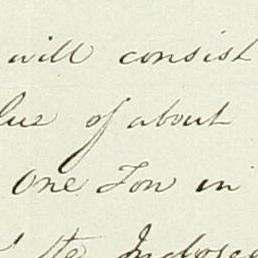 will consist
lue of about
One Ton in
the Inclosed